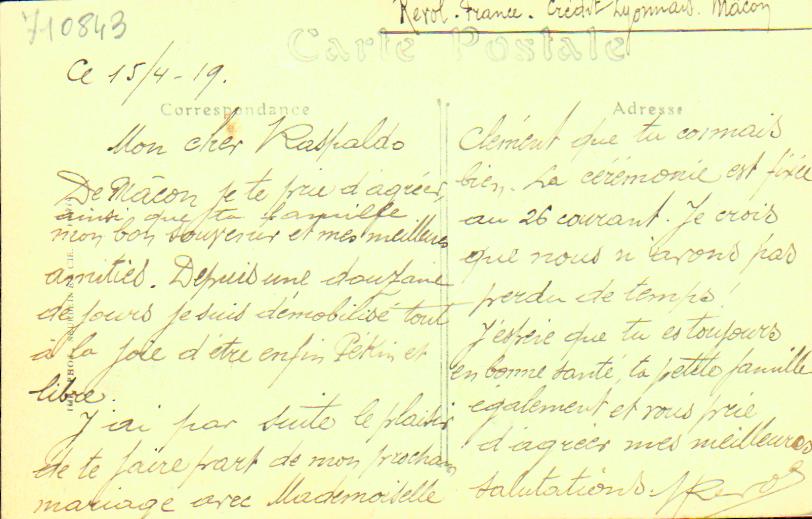 710843
Revol - France - Crédit Lyonnais. Mâcon
Carte Postale
Ce 15/4-19.
Correspondance
Adresse
Mon cher Raspaldo
De Mâcon je te prie d'agréer,
ainsi que ta famille
mon bon souvenir et mes meilleures
amitiés. Depuis une douzaine
de jours je suis démobilisé tout
à la joie d'être enfin Pékin et
libre.
J'ai par suite le plaisir
de te faire part de mon prochain
mariage avec Mademoiselle
Clément que tu connais
bien. La cérémonie est fixée
au 26 courant. Je crois
que nous n'avons pas
perdu de temps!
J'espère que tu es toujours
en bonne santé, ta petite famille
également et vous prie
d'agréer mes meilleures
salutations. Revol